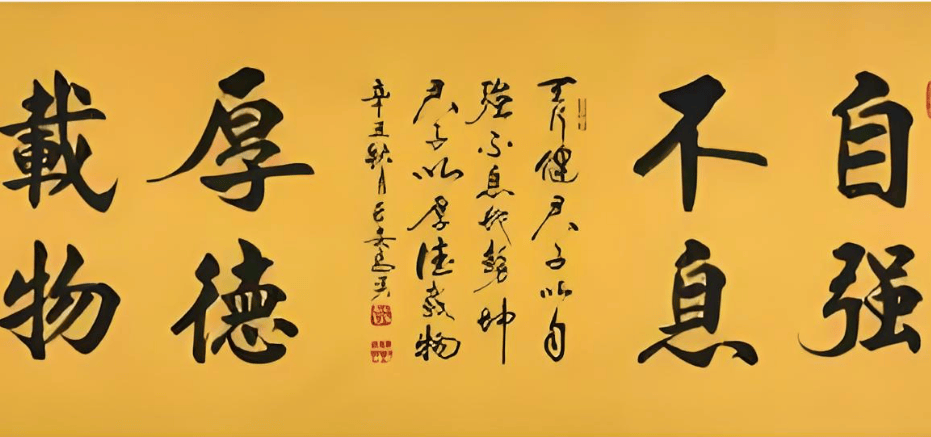 自强
不息
天行健君子以自
強不息地勢坤
君子以厚德載物
辛丑秋月
厚德
載物